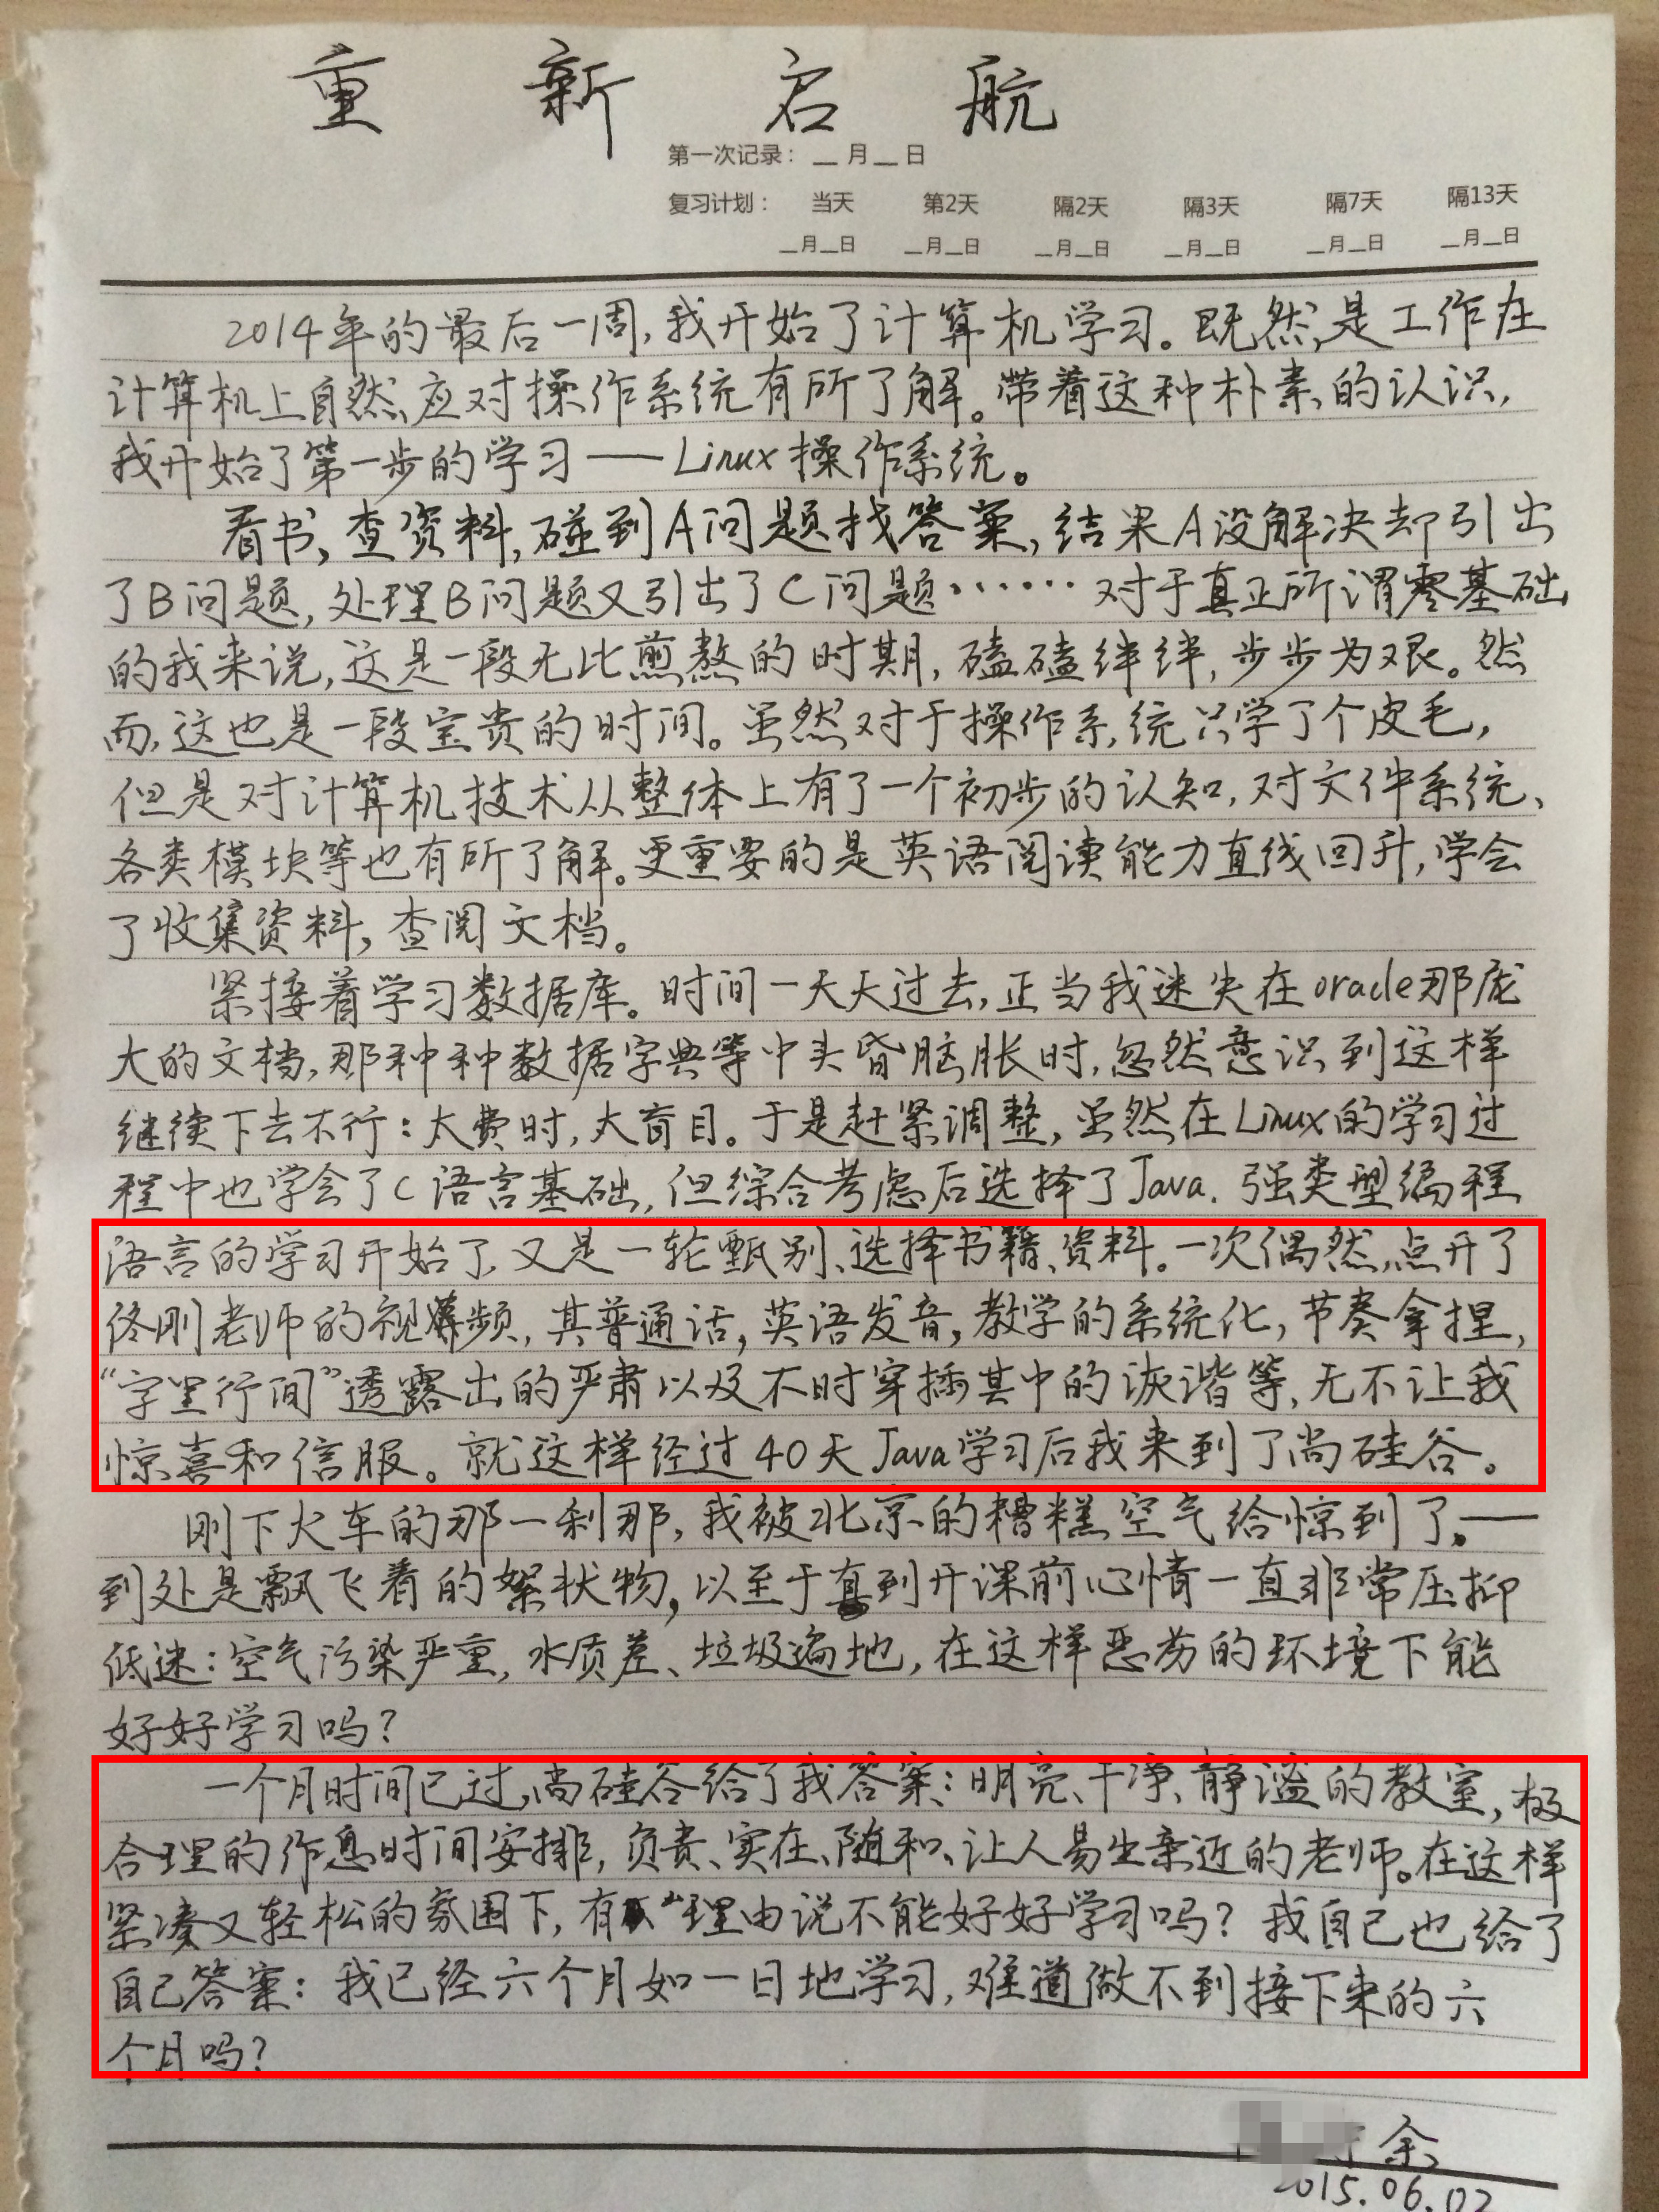 重新启航
第一次记录：__月__日
复习计划： 当天 第2天 隔2天 隔3天 隔7天 隔13天
__月__日 __月__日 __月__日 __月__日 __月__日 __月__日
2014年的最后一周，我开始了计算机学习。既然是工作在
计算机上自然应对操作系统有所了解。带着这种朴素的认识，
我开始了第一步的学习——Linux操作系统。
看书，查资料，碰到A问题找答案，结果A没解决却引出
了B问题，处理B问题又引出了C问题……对于真正所谓零基础
的我来说，这是一段无比煎熬的时期，磕磕绊绊，步步为艰。然
而，这也是一段宝贵的时间。虽然对于操作系统只学了个皮毛，
但是对计算机技术从整体上有了一个初步的认知，对文件系统、
各类模块等也有所了解。更重要的是英语阅读能力直线回升，学会
了收集资料，查阅文档。
紧接着学习数据库。时间一天天过去，正当我迷失在oracle那庞
大的文档，那种种数据字典等中头昏脑胀时，忽然意识到这样
继续下去不行：太费时，太盲目。于是赶紧调整，虽然在Linux的学习过
程中也学会了C语言基础，但综合考虑后选择了Java. 强类型编程
语言的学习开始了，又是一轮甄别、选择书籍、资料。一次偶然，点开了
佟刚老师的视频，其普通话，英语发音，教学的系统化，节奏拿捏，
“字里行间”透露出的严肃以及不时穿插其中的诙谐等，无不让我
惊喜和信服。就这样经过40天Java学习后我来到了尚硅谷。
刚下火车的那一刹那，我被北京的糟糕空气给惊到了。——
到处是飘飞着的絮状物，以至于直到开课前心情一直非常压抑
低迷：空气污染严重，水质差、垃圾遍地，在这样恶劣的环境下能
好好学习吗？
一个月时间已过，尚硅谷给了我答案：明亮、干净、静谧的教室，极
合理的作息时间安排，负责、实在、随和、让人易生亲近的老师。在这样
紧凑又轻松的氛围下，有理由说不能好好学习吗？我自己也给了
自己答案：我已经六个月如一日地学习，难道做不到接下来的六
个月吗？
余
2015.06.02